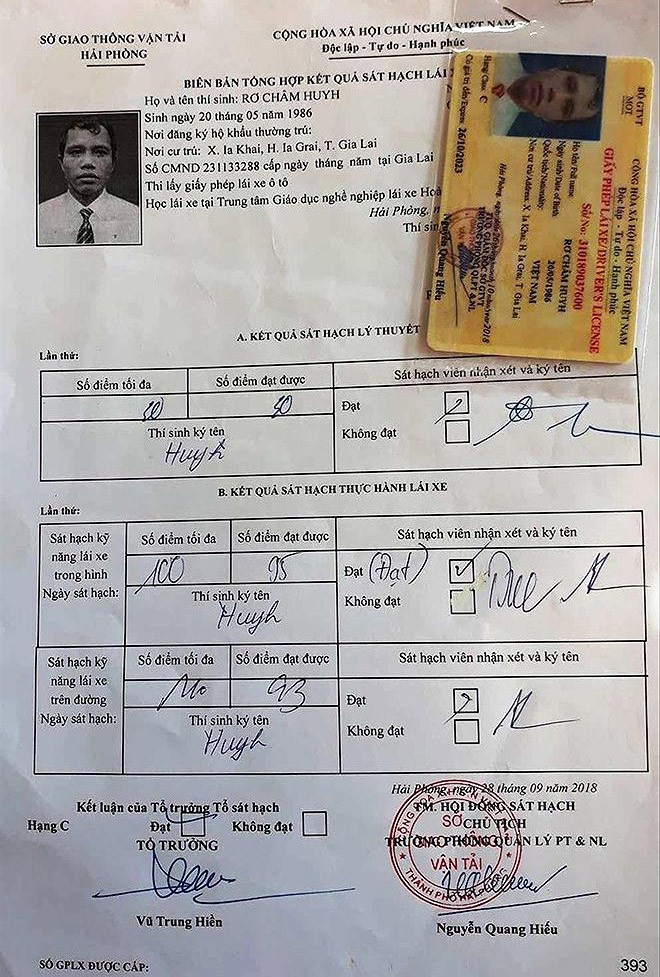 SỞ GIAO THÔNG VẬN TẢI
HẢI PHÒNG
CỘNG HÒA XÃ HỘI CHỦ NGHĨA VIỆT NAM
Độc lập - Tự do - Hạnh phúc
BIÊN BẢN TỔNG HỢP KẾT QUẢ SÁT HẠCH LÁI
Họ và tên thí sinh: RƠ CHÂM HUYH
Sinh ngày 20 tháng 05 năm 1986
Nơi đăng ký hộ khẩu thường trú:
Nơi cư trú: X. Ia Khai, H. Ia Grai, T. Gia Lai
Số CMND 231133288 cấp ngày tháng năm tại Gia Lai
Thi lấy giấy phép lái xe ô tô
Học lái xe tại Trung tâm Giáo dục nghề nghiệp lái xe Hoà
Hải Phòng,
Thí sin
BỘ GTVT
MOT
CỘNG HÒA XÃ HỘI CHỦ NGHĨA VIỆT NAM
Độc lập - Tự do - Hạnh phúc
GIẤY PHÉP LÁI XE/DRIVER'S LICENSE
Số/No: 310189037600
Họ tên/Full name: RƠ CHÂM HUYH
Ngày sinh/Date of Birth: 20/05/1986
Quốc tịch/Nationality: VIỆT NAM
Nơi cư trú/Address: X. Ia Khai, H. Ia Grai, T. Gia Lai
Hải Phòng, ngày/date 26 tháng/month 10 năm/year 2018
TUQ. GIÁM ĐỐC SỞ GTVT
TRƯỞNG PHÒNG QLPT & NL
Nguyễn Quang Hiếu
Hạng/Class: C
Có giá trị đến/Expires: 26/10/2023
A. KẾT QUẢ SÁT HẠCH LÝ THUYẾT
Lần thứ:
Số điểm tối đa
Số điểm đạt được
Sát hạch viên nhận xét và ký tên
Đạt
Không đạt
Thí sinh ký tên
Huyh
B. KẾT QUẢ SÁT HẠCH THỰC HÀNH LÁI XE
Lần thứ:
Sát hạch kỹ
năng lái xe
trong hình
Ngày sát hạch:
Số điểm tối đa
Số điểm đạt được
Sát hạch viên nhận xét và ký tên
100
95
Đạt (Đạt)
Không đạt
Thí sinh ký tên
Huyh
Sát hạch kỹ
năng lái xe
trên đường
Ngày sát hạch:
Số điểm tối đa
Số điểm đạt được
Sát hạch viên nhận xét và ký tên
93
Đạt
Không đạt
Thí sinh ký tên
Huyh
Hải Phòng, ngày 28 tháng 09 năm 2018
Kết luận của Tổ trưởng Tổ sát hạch
Hạng C
Đạt
Không đạt
TỔ TRƯỞNG
Vũ Trung Hiền
TM. HỘI ĐỒNG SÁT HẠCH
CHỦ TỊCH
TRƯỞNG PHÒNG QUẢN LÝ PT & NL
SỞ
GIAO THÔNG
VẬN TẢI
Nguyễn Quang Hiếu
SỐ GPLX ĐƯỢC CẤP:
393